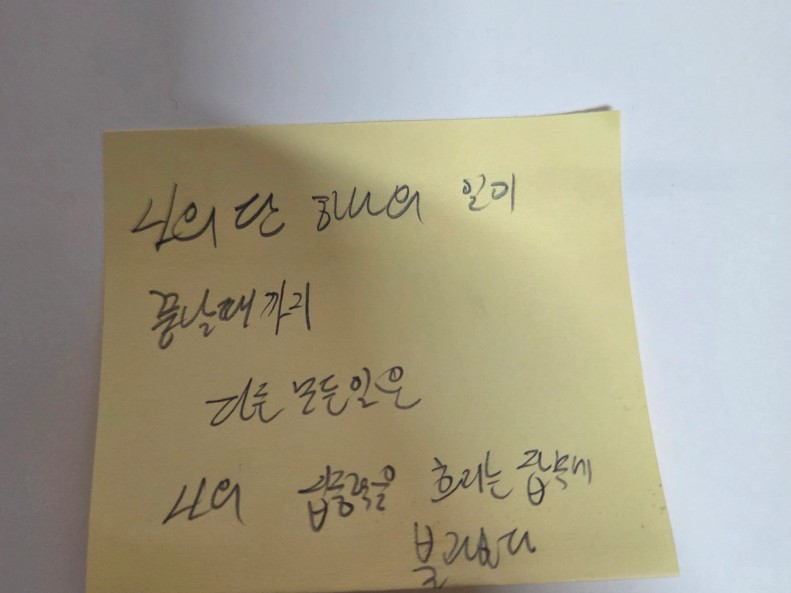 나의 단 하나의 일이
끝날때까지
다른 모든일은
나의 집중력을 흐리는 잡무에
불과하다